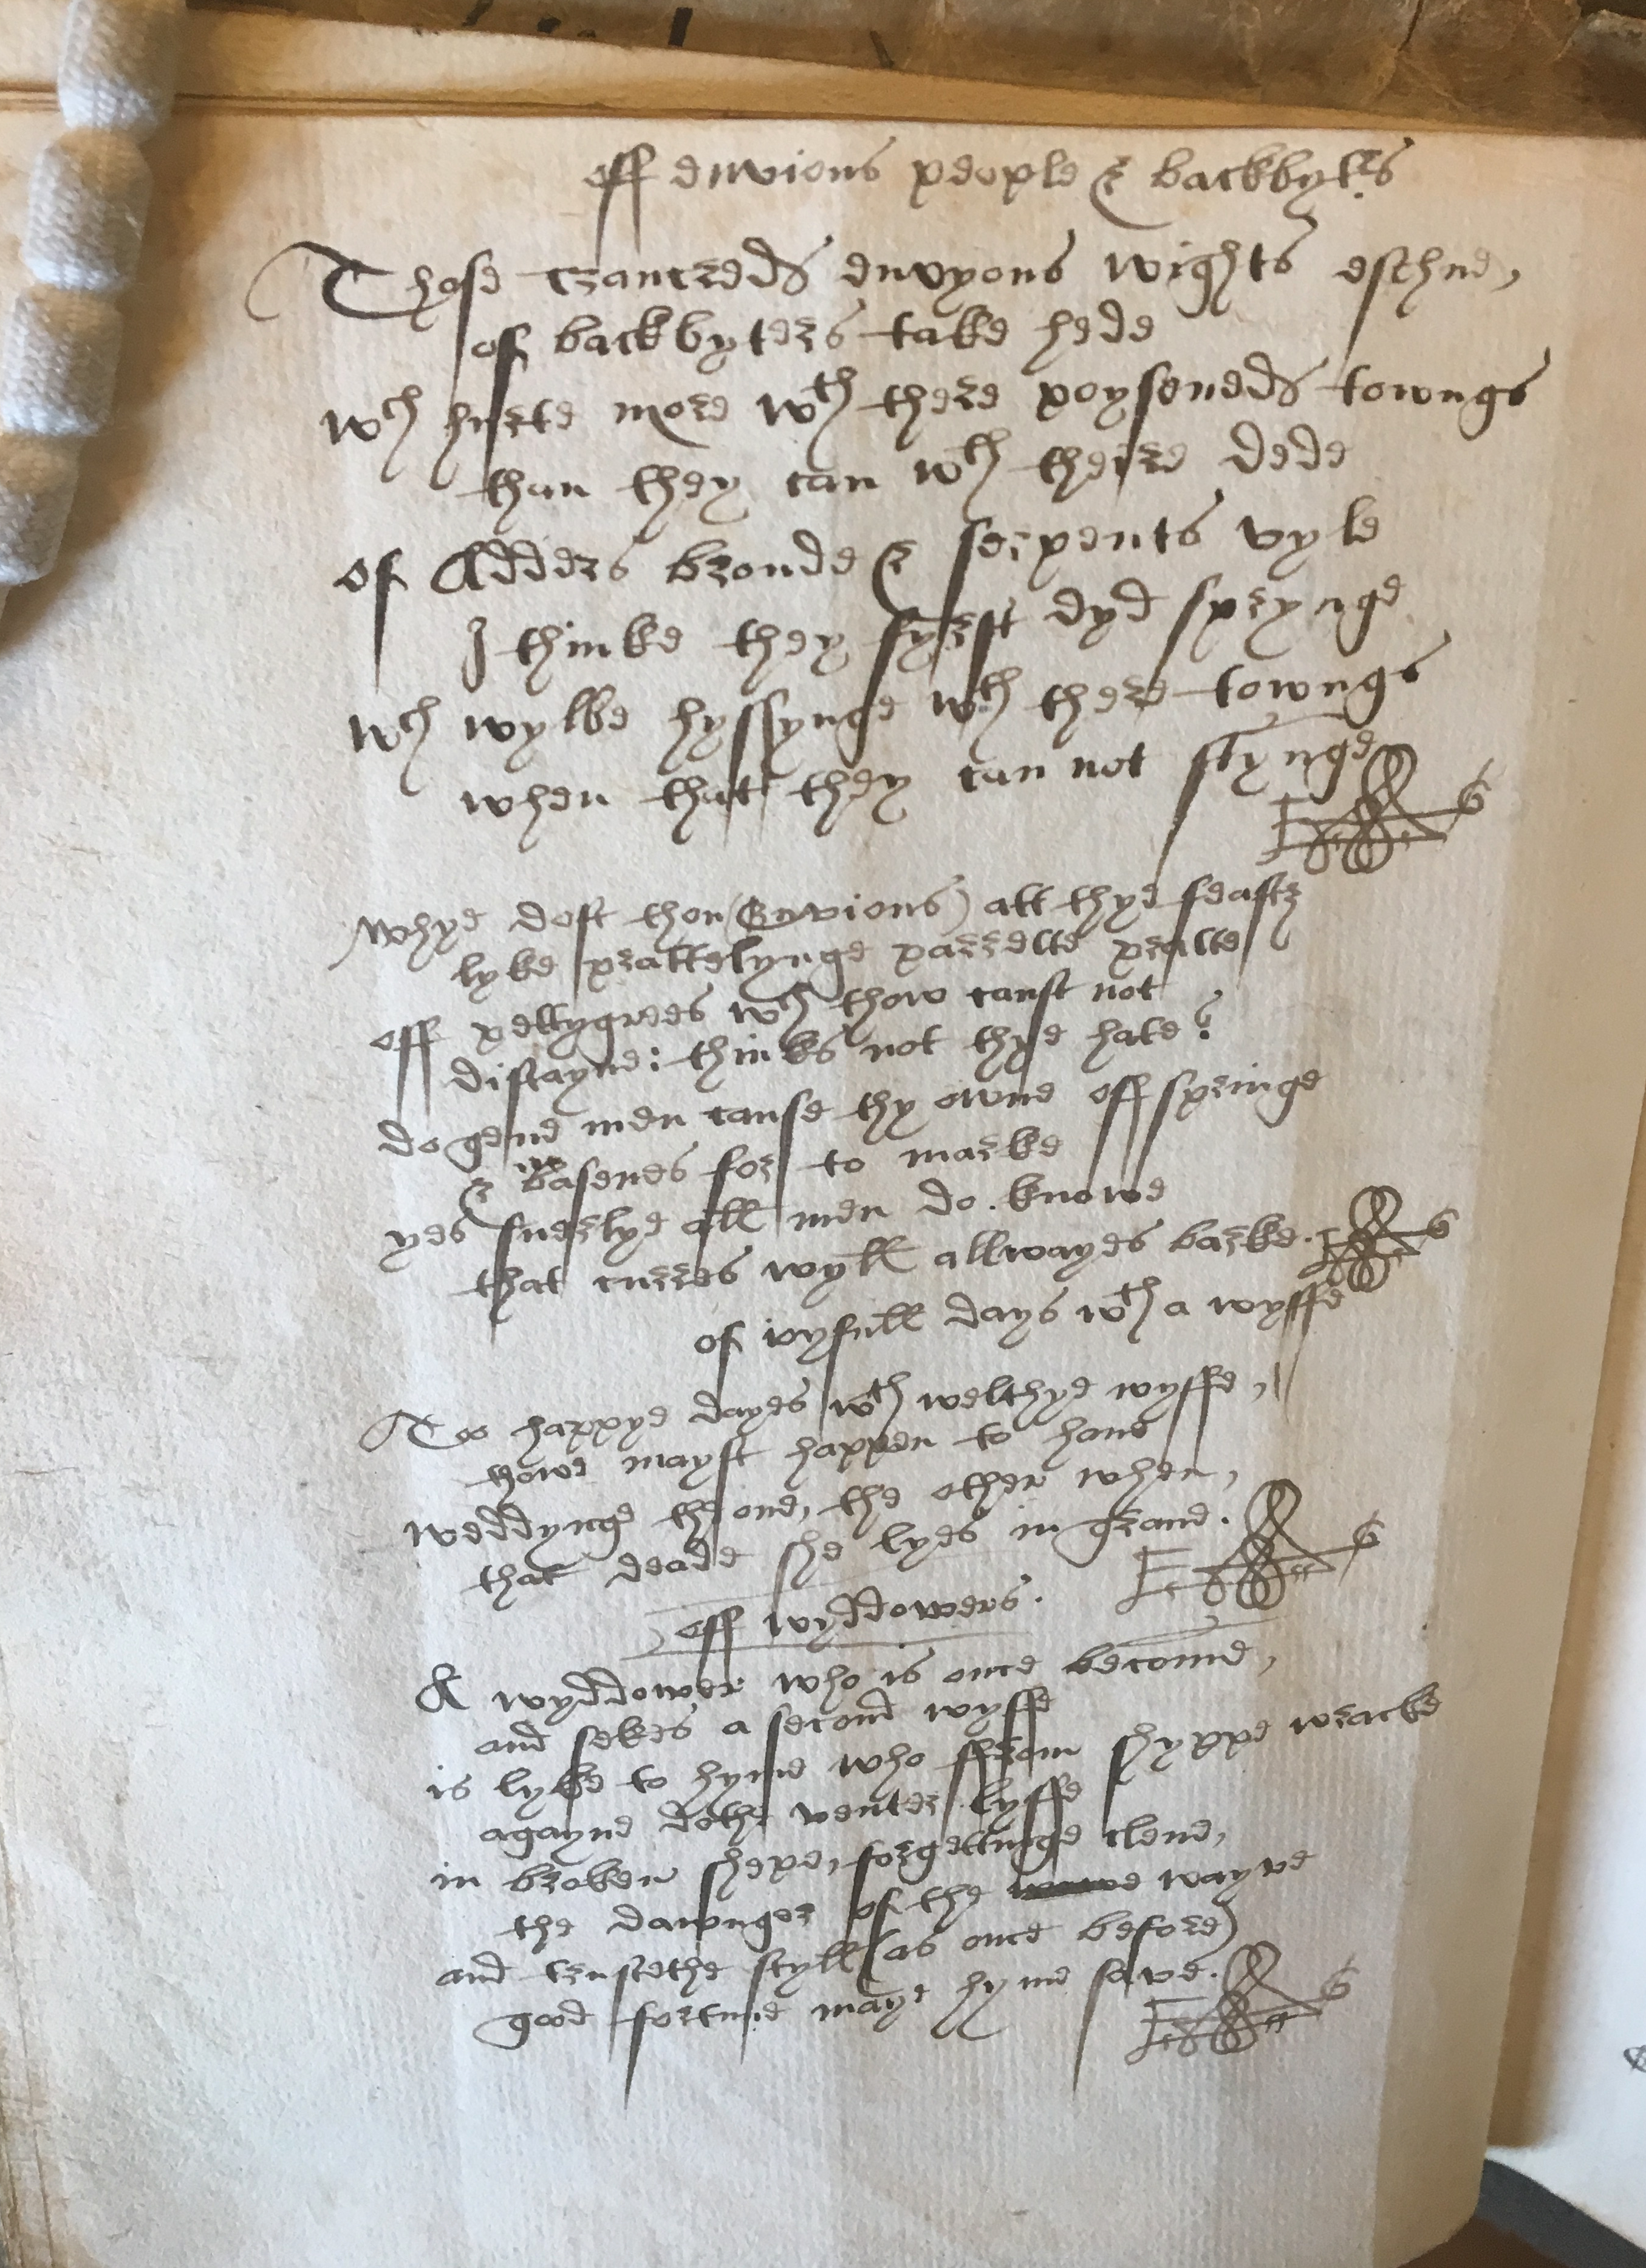 off envious people & backbyters
Those crancreds envyous wights eschue,
of backbyters take hede
wch hurte more wth there poyseneds towngs
than they can wth theire dede
of Adders broude & serpents vyle
I thinke they fyrst dyd sprynge
wch wylbe hyssynge wth there towngs
when that they can not stynge
whye dost thou (Envious) att thye feasts
lyke prattelynge parrette pratte
off pettygrees wch thow canst not
distayne: thinks not thye hate?
do gene men cause thy owne offspringe
& basenes for to marke
yes suerlye all men do knowe
that curres wyll allwayes barke.
of ioyfull days wth a wyffe
Too happye dayes wth welthye wyffe,
thowe mayst happen to haue
weddynge the one, the other when,
that deade she lyes in graue.
off wyddowers.
A wyddower who is once become,
and sekes a second wyffe
is lyke to hyme who ffrom shyppe wracke
agayne dothe venter lyffe
in broken shepe, forgettinge clene,
the dawnger of the wayve
and trustethe styll (as once before)
good fortune maye hyme save.